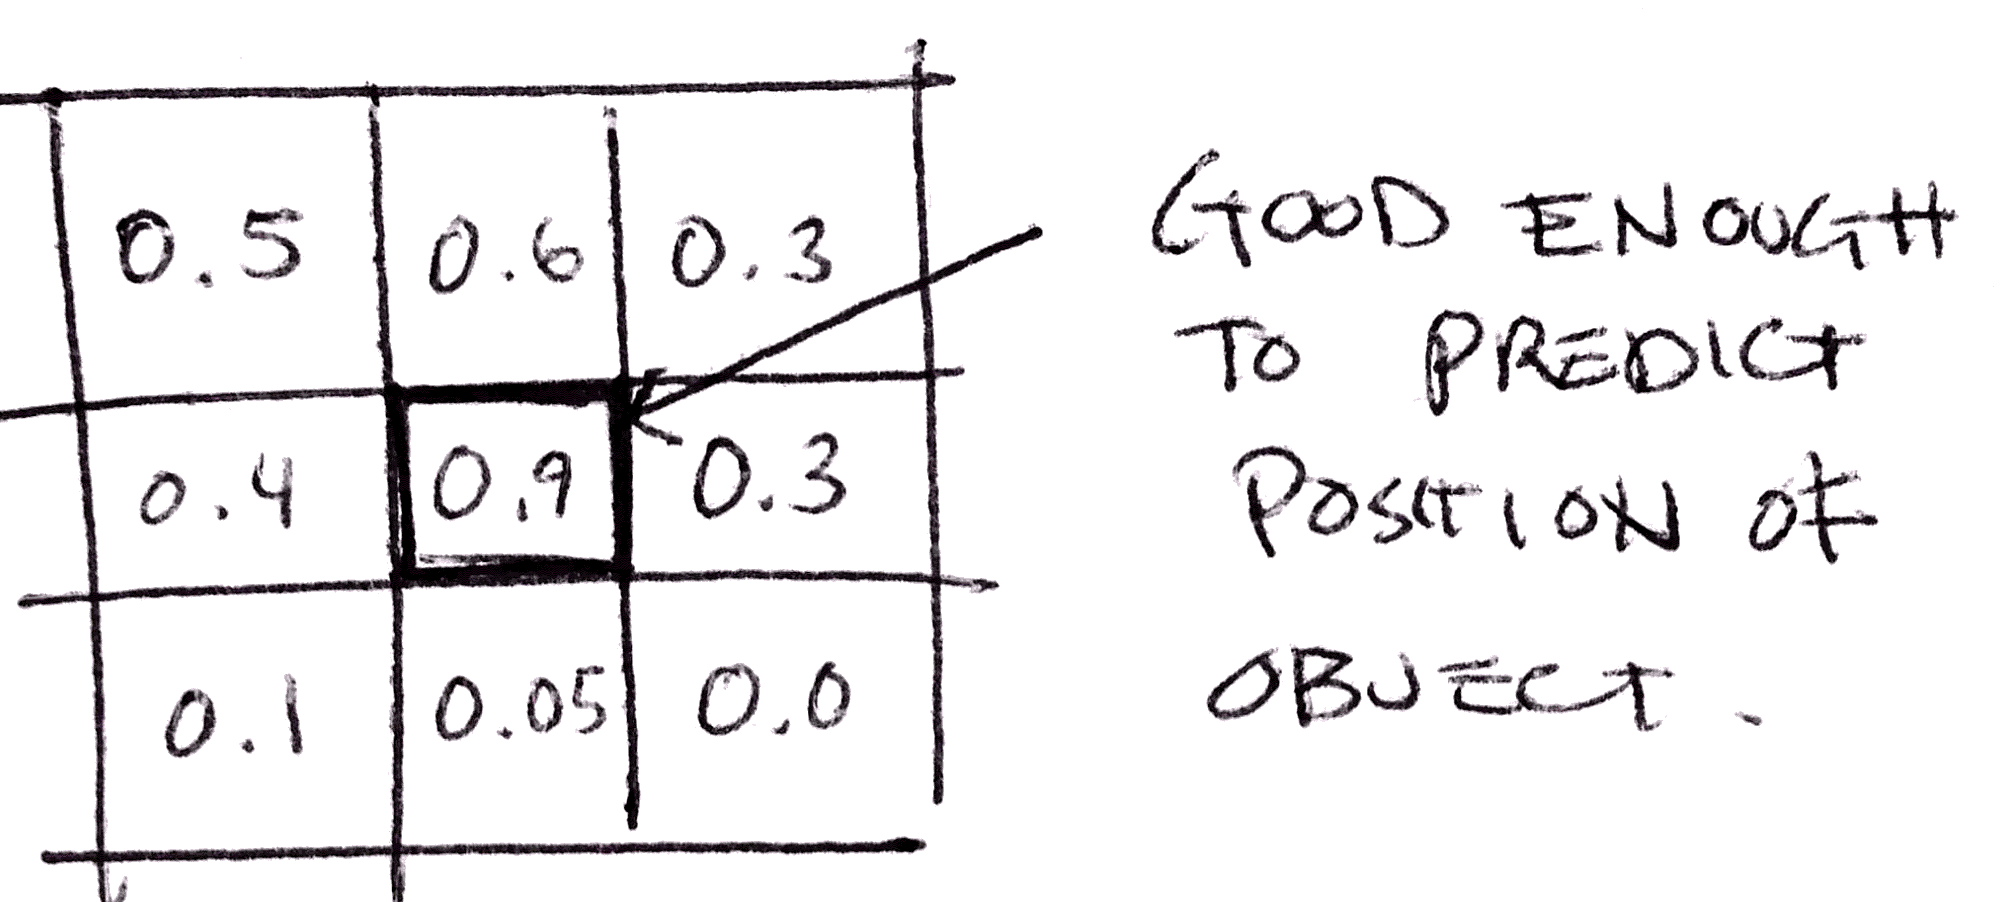 0.5 0.6 0.3
0.4 0.9 0.3
0.1 0.05 0.0
GOOD ENOUGH
TO PREDICT
POSITION OF
OBJECT.